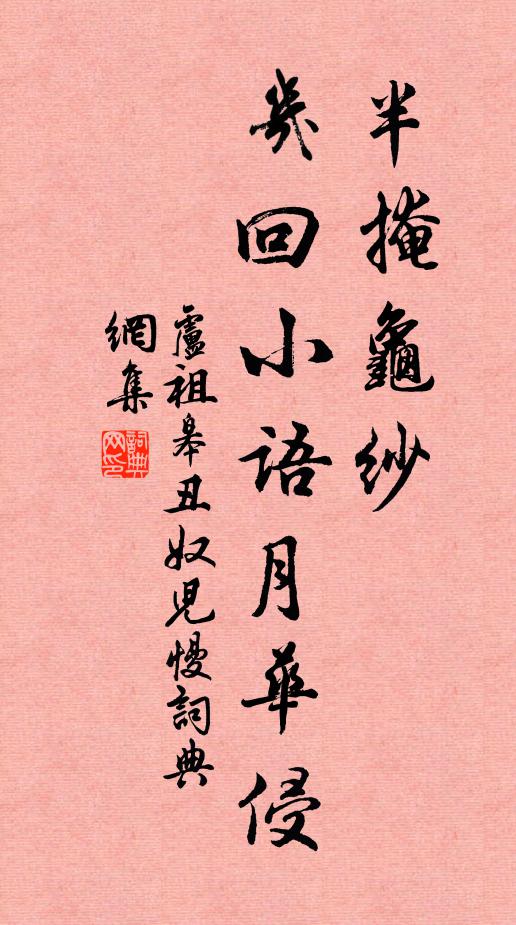 半掩龜紗
幾回小語月華侵
盧祖皋丑奴兒慢詞典
網集
詞典網印